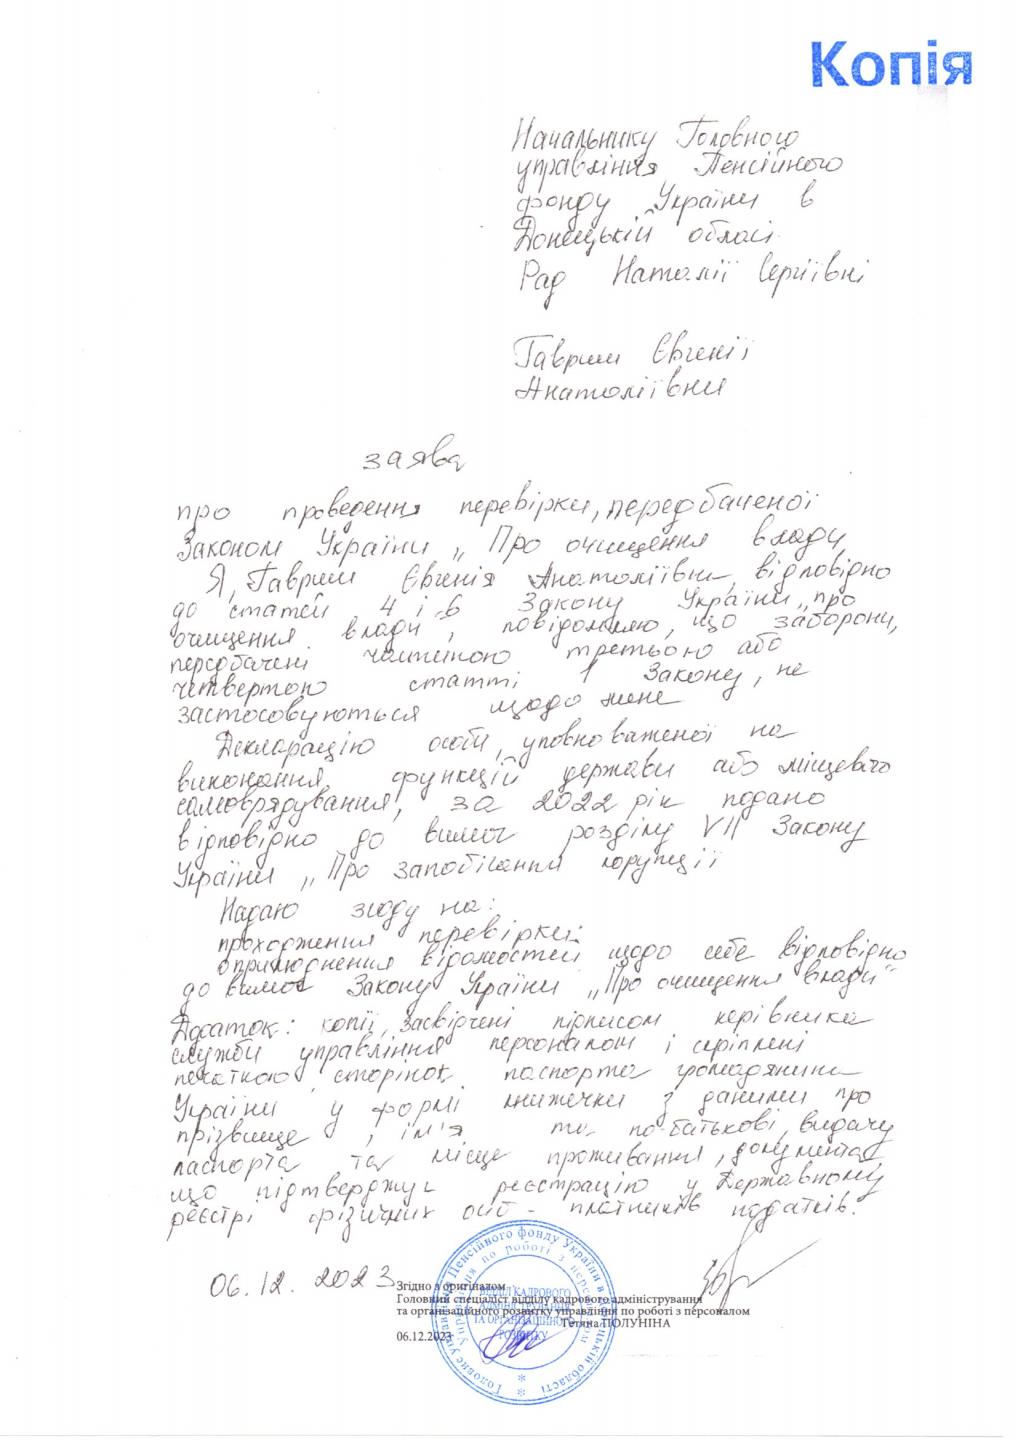 Копія
Начальнику Головного
управління Пенсійного
фонду України в
Донецькій обласі
Рад Наталії Сергіївні
Гавриш Євгенії
Анатоліївни
заява
про проведення перевірки, передбаченої
Законом України „Про очищення влади„
Я, Гавриш Євгенія Анатоліївна, відповідно
до статей 4 і 6 Закону України „про
очищення влади", повідомляю, що заборони,
передбачені частиною третьою або
четвертою статті 1 Закону, не
застосовуються щодо мене
Декларацію особи, уповноваженої на
виконання функцій держави або місцевого
самоврядування, за 2022 рік подано
відповідно до вимог розділу VII Закону
України „Про запобігання корупції
Надаю згоду на:
проходження перевірки;
оприлюднення відомостей щодо себе відповідно
до вимог Закону України „Про очищення влади"
Додаток: копії, засвідчені підписом керівника
служби управління персоналом і скріплені
печаткою, сторінок паспорта громадянина
України у формі книжечки з даними про
прізвище, ім'я та по-батькові, видачу
паспорта та місце проживання, документа
що підтверджує реєстрацію у Державному
реєстрі фізичних осіб - платників податків.
06.12.2023
Згідно з оригіналом
Головний спеціаліст відділу кадрового адміністрування
та організаційного розвитку управління по роботі з персоналом
Тетяна ПОЛУНІНА
06.12.2023
Головне управління Пенсійного фонду України в Донецькій області
Управління по роботі з персоналом
ВІДДІЛ КАДРОВОГО
АДМІНІСТРУВАННЯ
ТА ОРГАНІЗАЦІЙНОГО
РОЗВИТКУ